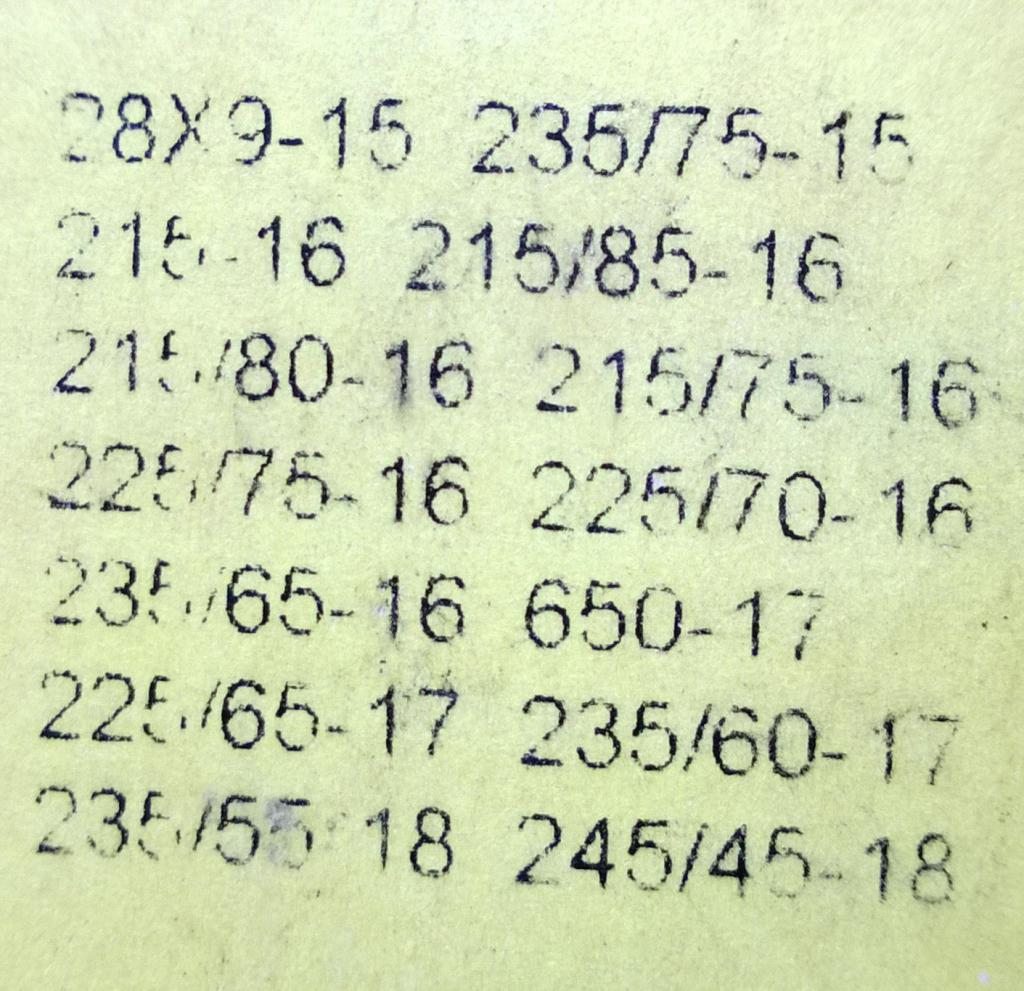 28X9-15 235/75-15
215-16 215/85-16
215/80-16 215/75-16
225/75-16 225/70-16
235/65-16 650-17
225/65-17 235/60-17
235/55-18 245/45-18